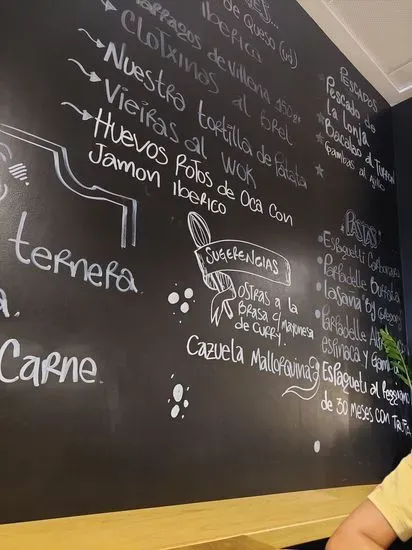 de Queso (ud)
Iberico
Espárragos de Villena 150gr
Clotxinas al forel
Nuestra tortilla de Patata
Vieiras al WOK
Huevos Rotos de Oca con
Jamon Iberico
ternera
Carne
Sugerencias
ostras a la
brasa y mayonesa
de curry.
Cazuela Mallorquina
Pescados
Pescado de
la Lonja
Bacalao al
Gambas al Ajillo
Pastas
Espaguetti Carbonara
Pardelle Buffala
Lasaña By Gregory
Pardelle
espinaca y Gamba
Espagueti al Peggiorino
de 30 meses con Trufa